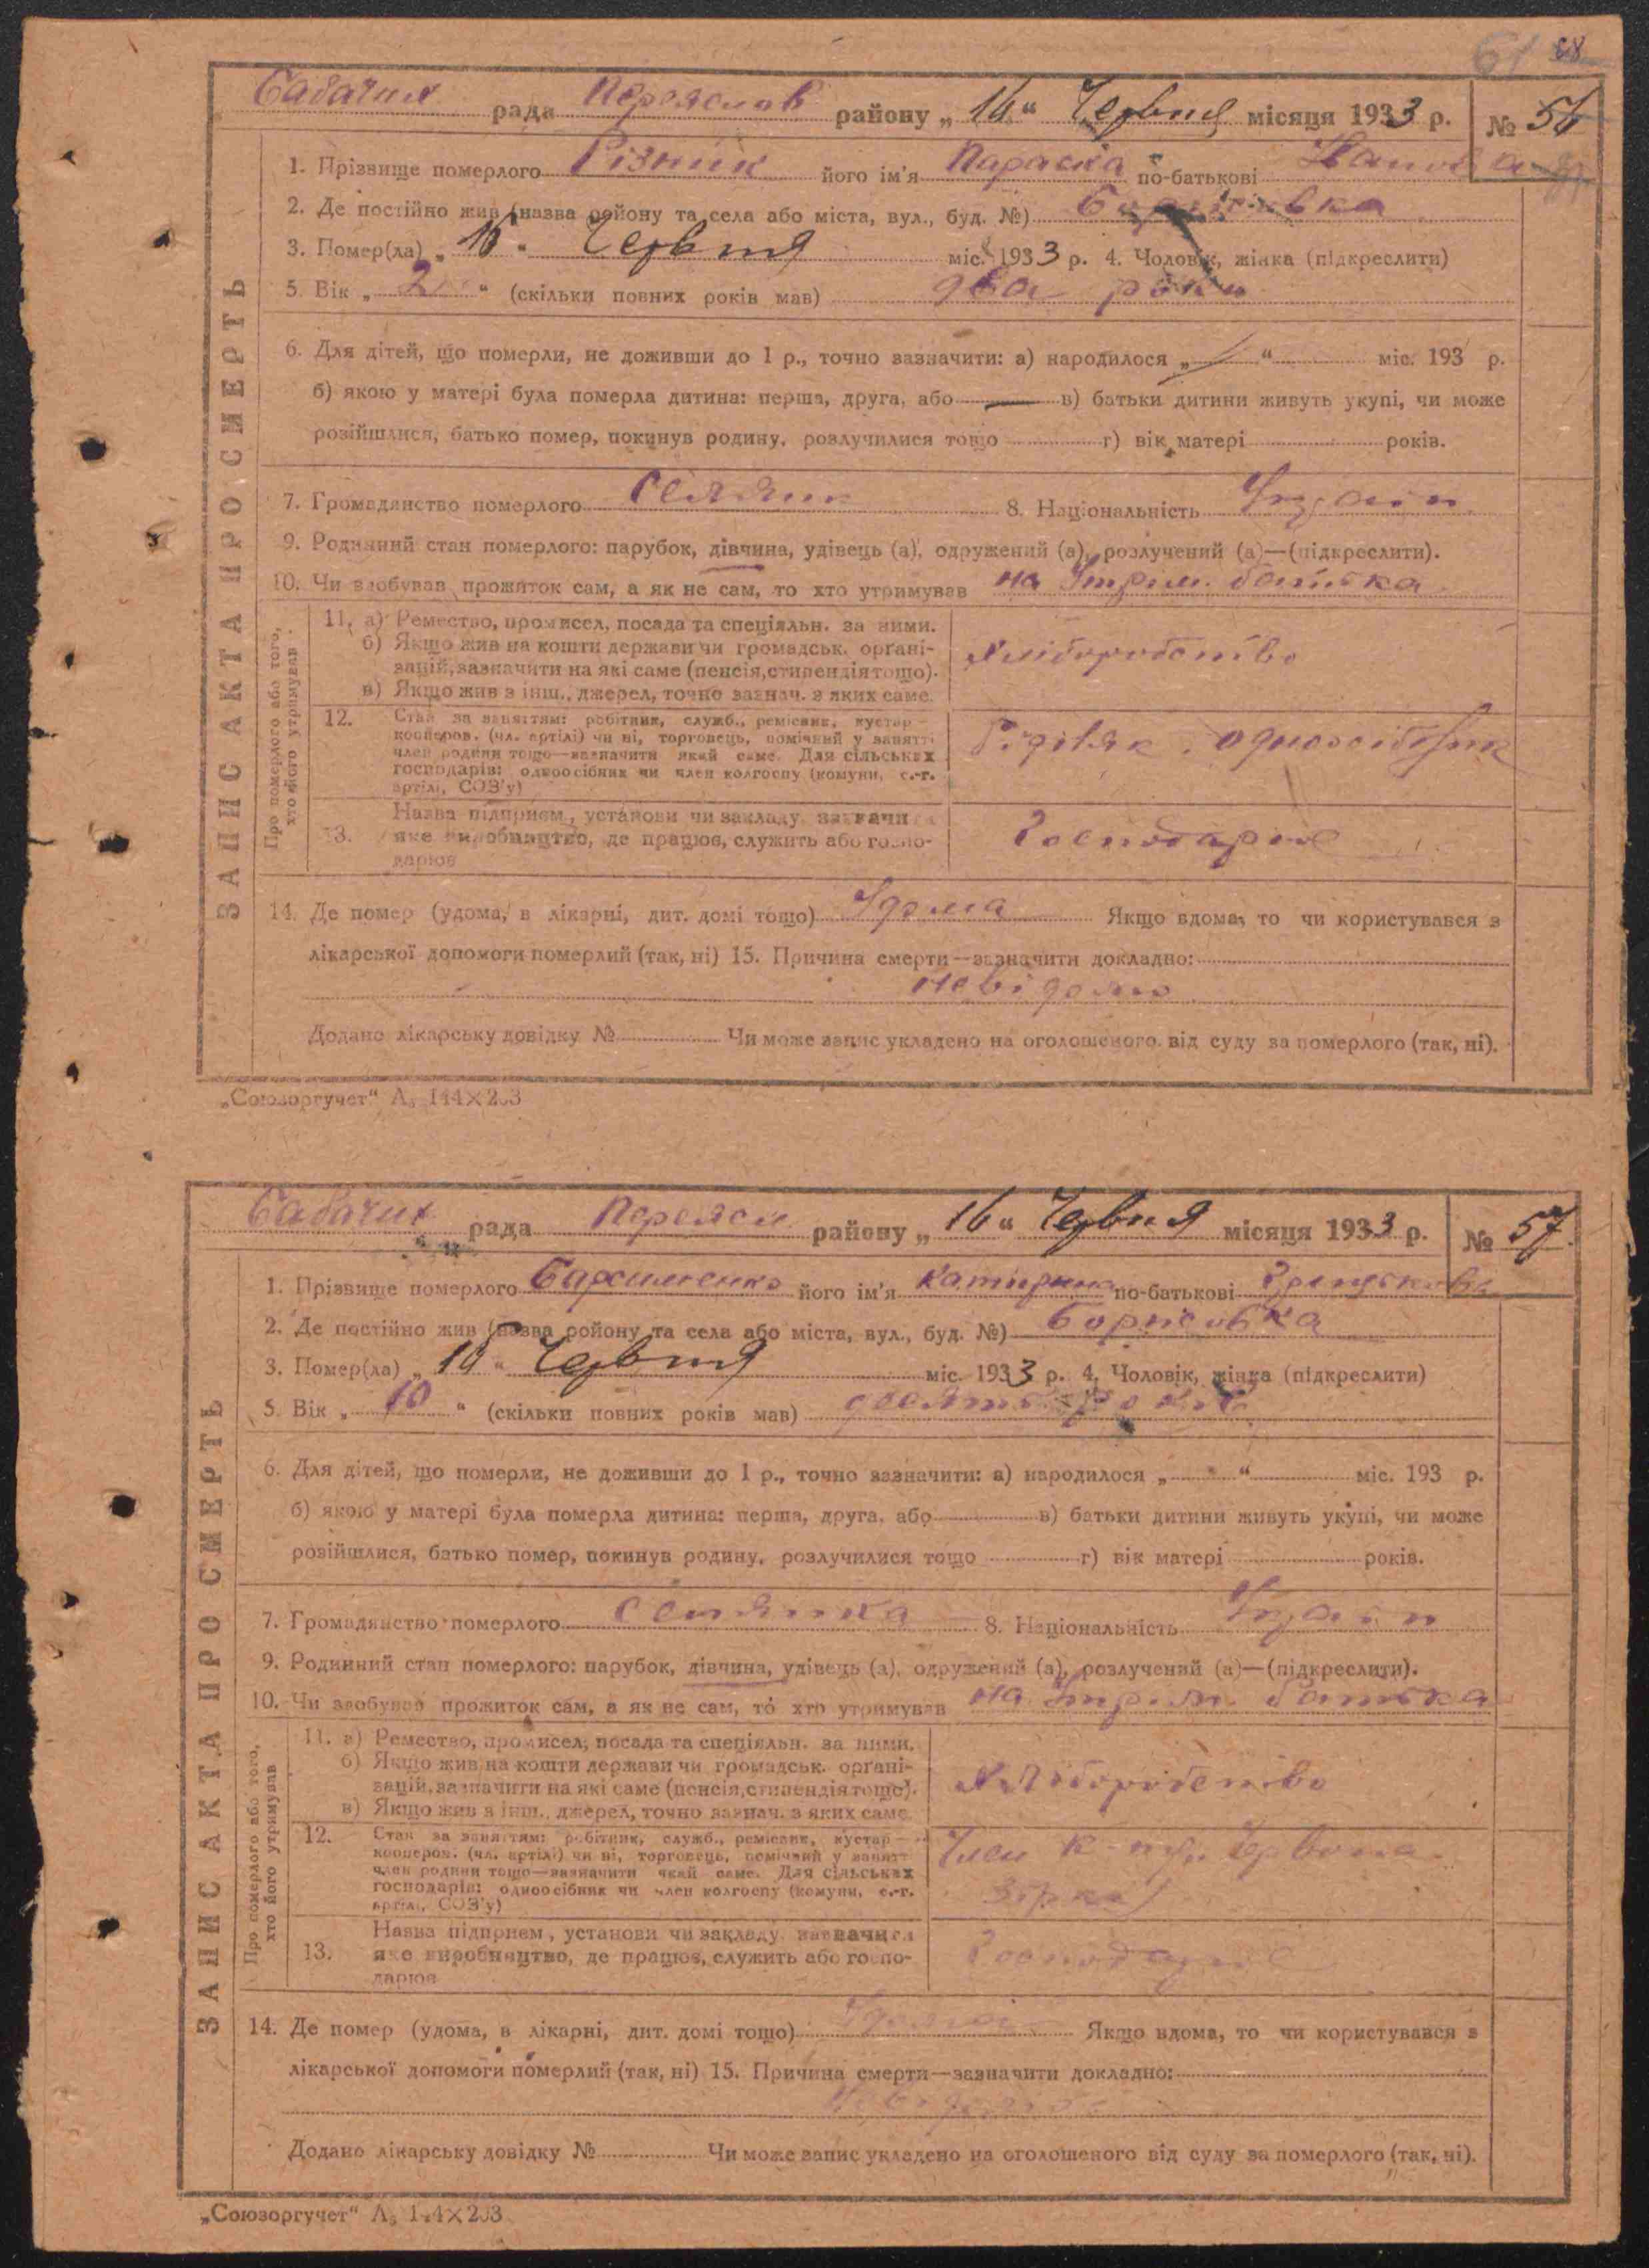 68
рада Переяслав району „16“ Червня місяця 1933 р. № 56
1. Прізвище померлого Різник його ім'я Параска по-батькові
2. Де постійно жив (назва ройону та села або міста, вул., буд. №)
3. Помер(ла) „16“ Червня міс. 1933 р. 4. Чоловік, жінка (підкреслити)
5. Вік „2“ (скільки повних років мав) два роки
6. Для дітей, що померли, не доживши до 1 р., точно зазначити: а) народилося „ “ міс. 193 р.
б) якою у матері була померла дитина: перша, друга, або — в) батьки дитини живуть укупі, чи може
розійшлися, батько помер, покинув родину, розлучилися тощо г) вік матері років.
7. Громадянство померлого селянин 8. Національність Україн.
9. Родинний стан померлого: парубок, дівчина, удівець (а), одружений (а), розлучений (а)—(підкреслити).
10. Чи здобував прожиток сам, а як не сам, то хто утримував на Утрим. батька
ЗАПИС АКТА ПРО СМЕРТЬ
Про померлого або того, хто його утримував
11. а) Ремество, промисел, посада та спеціяльн. за ними.
б) Якщо жив на кошти держави чи громадськ. орґані-
зацій, зазначити на які саме (пенсія, стипендія тощо).
в) Якщо жив з інш., джерел, точно зазнач. з яких саме.
Хліборобство
12. Стан за заняттям: робітник, служб., ремісник, кустар—
кооперов. (чл. артілі) чи ні, торговець, помічний у занятті
член родини тощо—зазначити який саме. Для сільських
господарів: одноосібник чи член колгоспу (комуни, с.-г.
артілі, СОЗ'у)
одноосібник
13. Назва підприєм., установи чи закладу, зазначити
яке виробництво, де працює, служить або госпо-
дарює
Господарює
14. Де помер (удома, в лікарні, дит. домі тощо) Удома Якщо вдома, то чи користувався з
лікарської допомоги померлий (так, ні) 15. Причина смерти—зазначити докладно:
невідомо
Додано лікарську довідку № Чи може запис укладено на оголошеного від суду за померлого (так, ні).
„Союзоргучет“ А₅ 144×203
рада Переясл району „16“ Червня місяця 1933 р. № 57
1. Прізвище померлого його ім'я Катирина по-батькові
2. Де постійно жив (назва ройону та села або міста, вул., буд. №) Борисовка
3. Помер(ла) „ “ Червня міс. 1933 р. 4. Чоловік, жінка (підкреслити)
5. Вік „10“ (скільки повних років мав) десять років
6. Для дітей, що померли, не доживши до 1 р., точно зазначити: а) народилося „ “ міс. 193 р.
б) якою у матері була померла дитина: перша, друга, або в) батьки дитини живуть укупі, чи може
розійшлися, батько помер, покинув родину, розлучилися тощо г) вік матері років.
7. Громадянство померлого селянка 8. Національність Україн
9. Родинний стан померлого: парубок, дівчина, удівець (а), одружений (а), розлучений (а)—(підкреслити).
10. Чи здобував прожиток сам, а як не сам, то хто утримував на Утрим. батька
ЗАПИС АКТА ПРО СМЕРТЬ
Про померлого або того, хто його утримував
11. а) Ремество, промисел, посада та спеціяльн. за ними.
б) Якщо жив на кошти держави чи громадськ. орґані-
зацій, зазначити на які саме (пенсія, стипендія тощо).
в) Якщо жив з інш., джерел, точно зазнач. з яких саме.
Хліборобство
12. Стан за заняттям: робітник, служб., ремісник, кустар—
кооперов. (чл. артілі) чи ні, торговець, помічний у занятті
член родини тощо—зазначити який саме. Для сільських
господарів: одноосібник чи член колгоспу (комуни, с.-г.
артілі, СОЗ'у)
Член Червона
Зірка
13. Назва підприєм., установи чи закладу, зазначити
яке виробництво, де працює, служить або госпо-
дарює
Господарює
14. Де помер (удома, в лікарні, дит. домі тощо) Удома Якщо вдома, то чи користувався з
лікарської допомоги померлий (так, ні) 15. Причина смерти—зазначити докладно:
Невідомо
Додано лікарську довідку № Чи може запис укладено на оголошеного від суду за померлого (так, ні).
„Союзоргучет“ А₅ 144×203